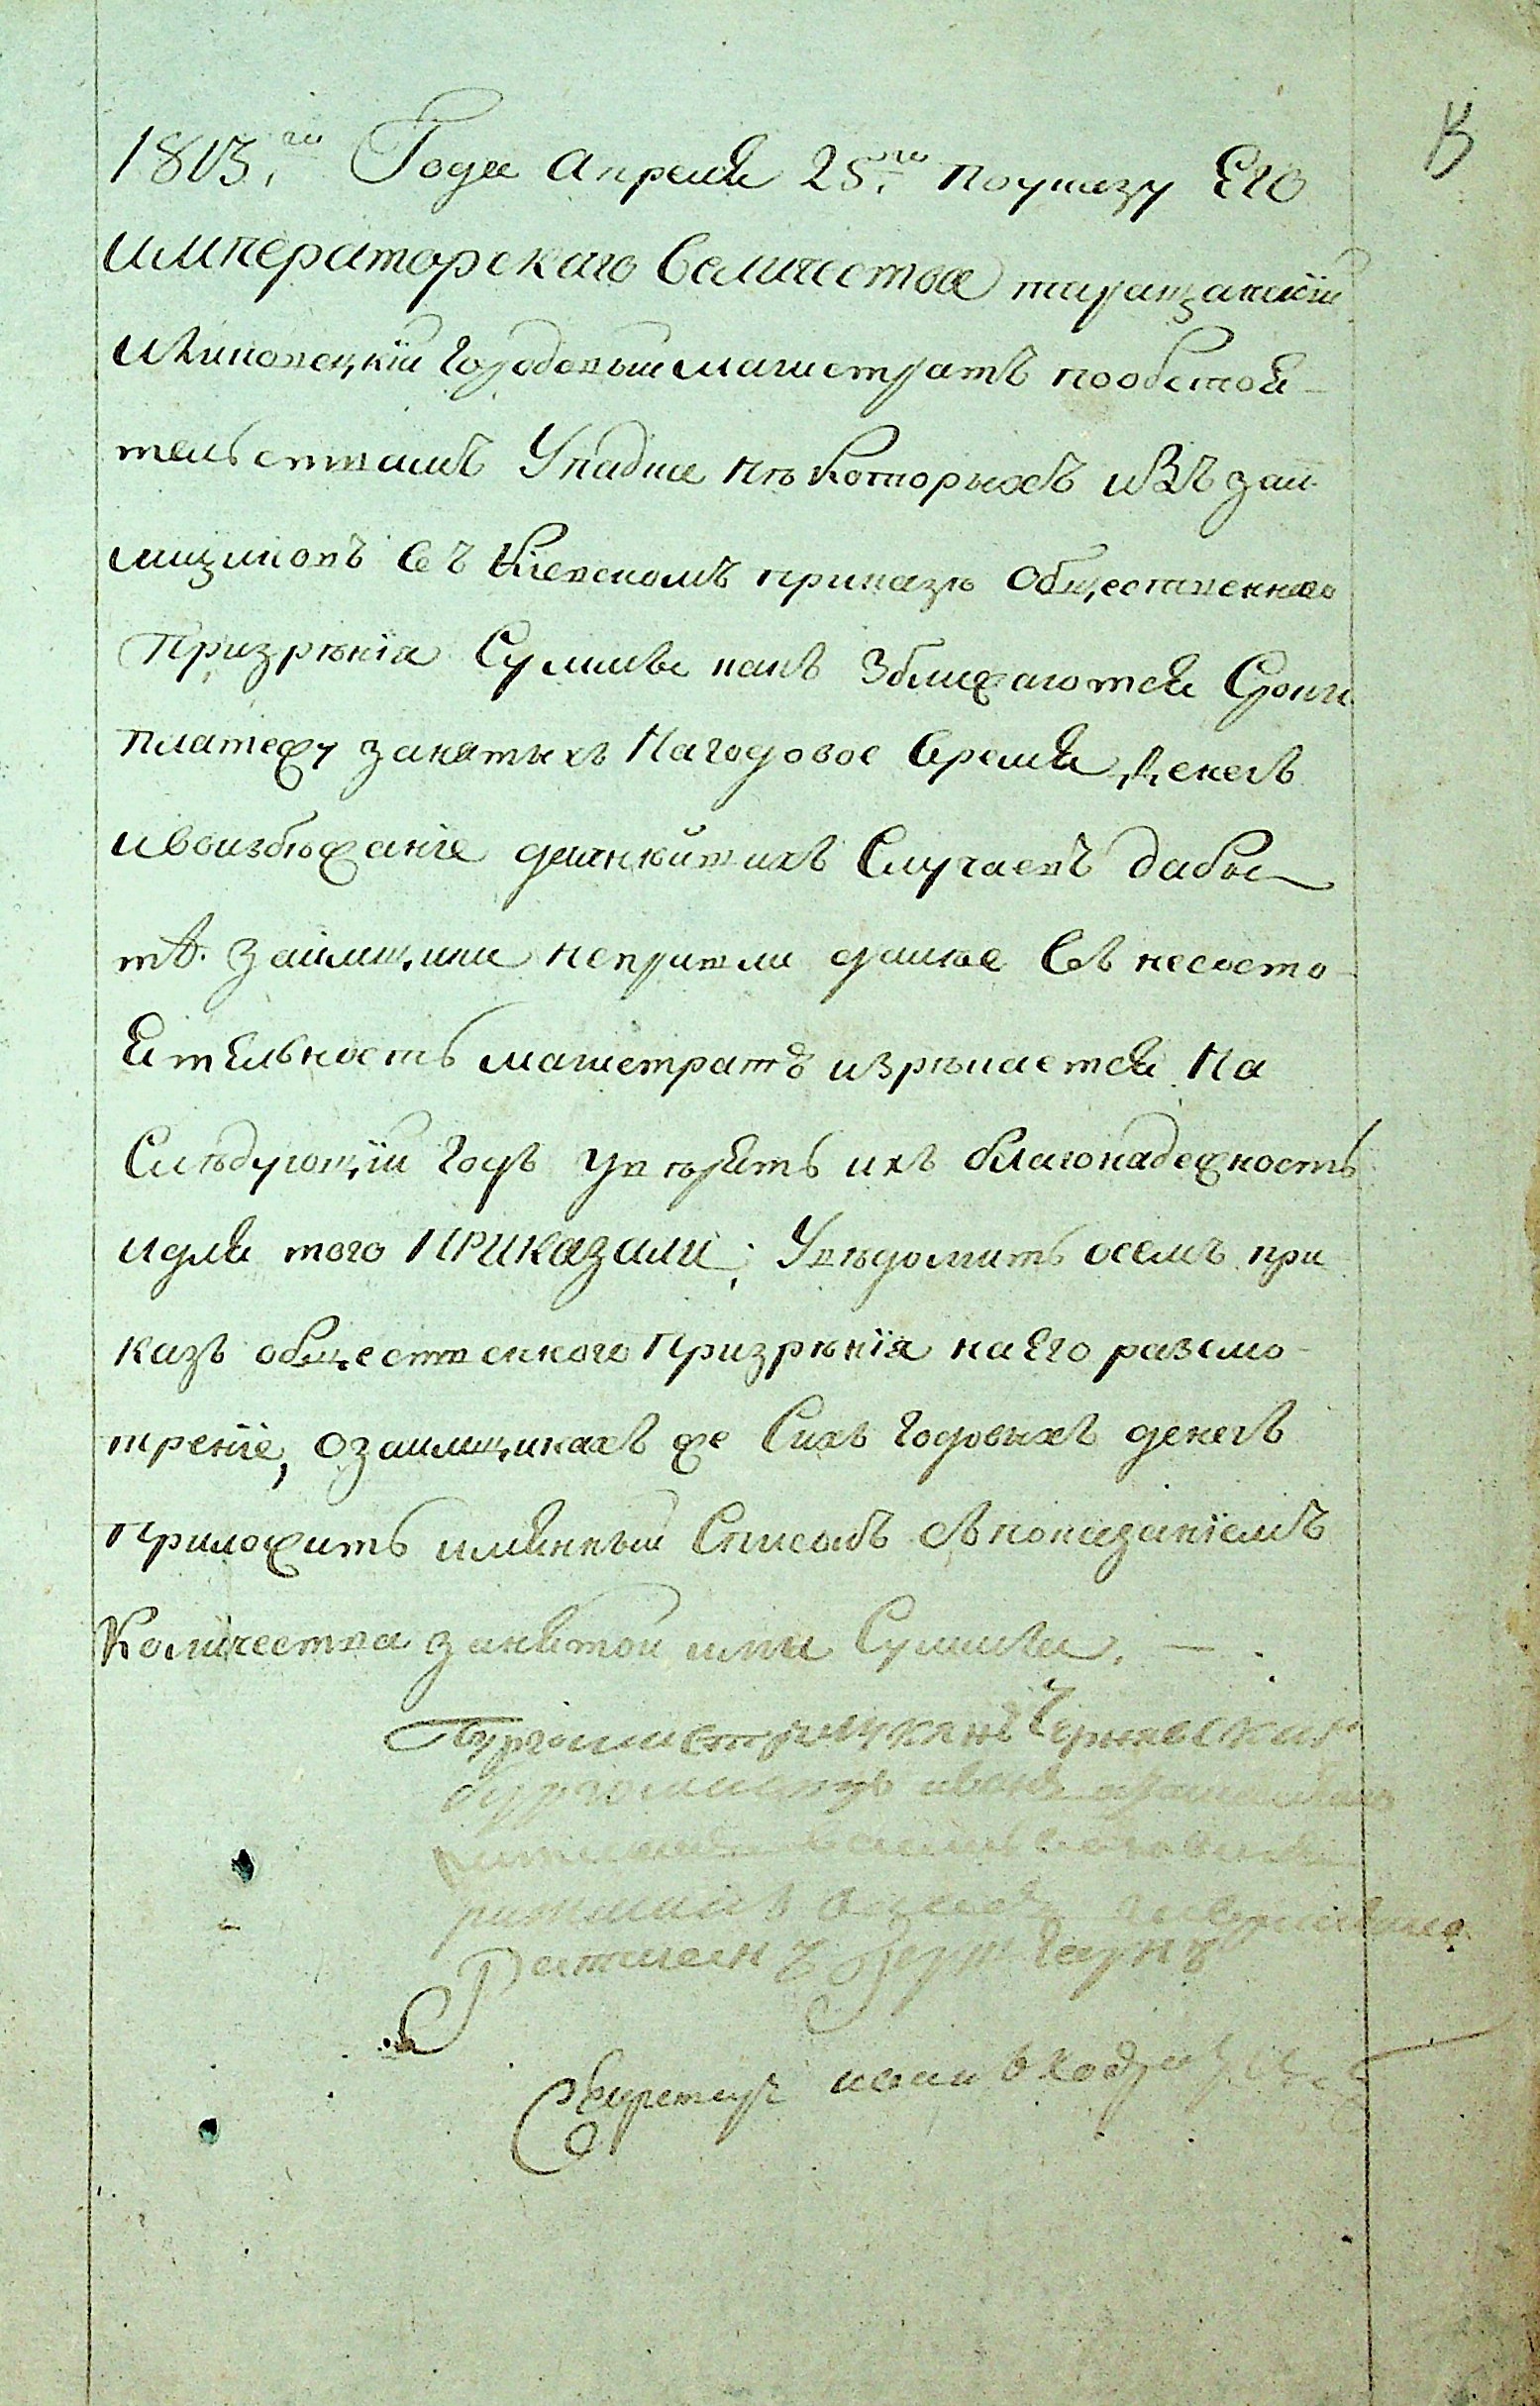 1813.го Года апреля 25.го поуказу Его
императорскаго величества таращанский
илиповецкій городовый магистратъ пообстоя-
тельствамъ упадка нѣкоторыхъ изъ заи-
мщиковъ въ Кіевскомъ приказѣ общественнаго
призрѣнія суммы какъ зближаются сроки
платежу занятыхъ нагодовое время денегъ
ивоизбѣжаніе далнѣйшихъ случаевъ дабы
тѣ займщики непришли далѣе въ несосто-
ятельность магистратъ изрѣкается на
слѣдующій годъ увѣрять ихъ благонадежность
идля того приказали: увѣдомить осемъ при
казъ общественного призрѣнія на Его разсмо-
треніе, озаимщикахъ же сихъ годовыхъ денегъ
приложить имянный списокъ съ показаніемъ
количества занятой ими суммы. —
Бургомистръ Лукянъ Чернявский
бургомистръ иванъ
ратманъ
ратманъ
Ратманъ
Секретарь иванъ